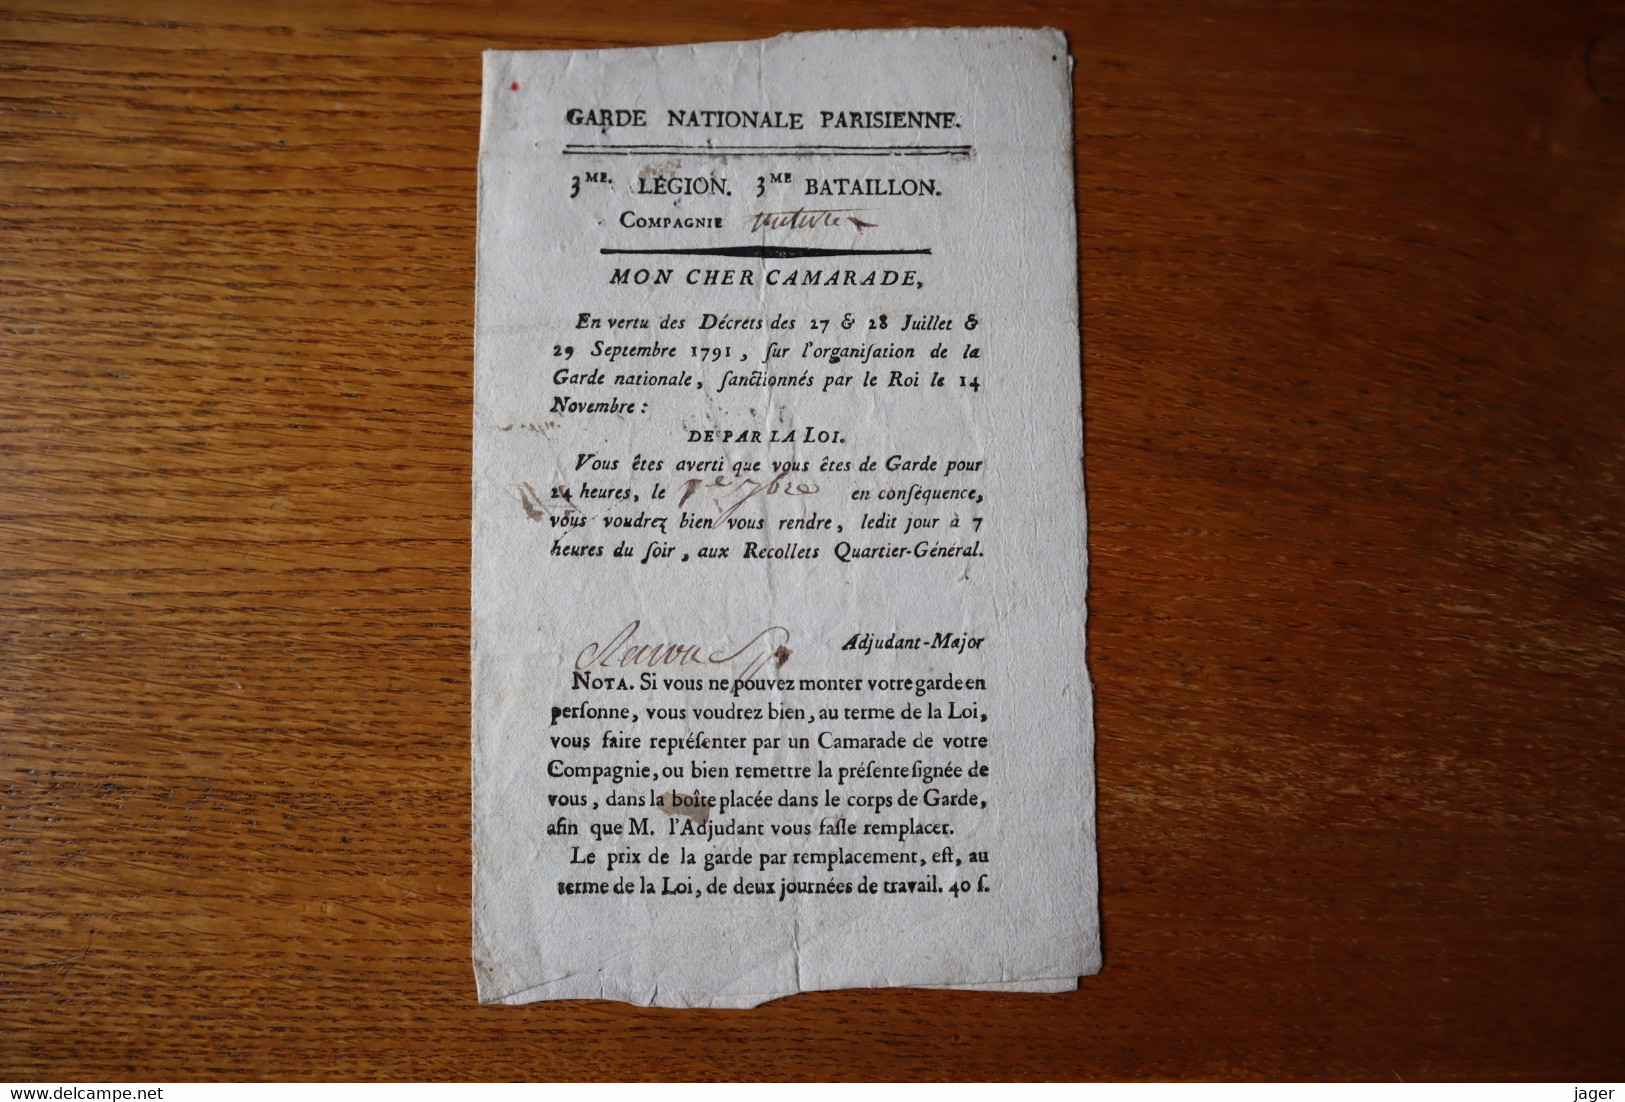 GARDE NATIONALE PARISIENNE.
3ME. LÉGION. 3ME BATAILLON.
COMPAGNIE
MON CHER CAMARADE,
En vertu des Décrets des 27 & 28 Juillet &
29 Septembre 1791, ſur l'organiſation de la
Garde nationale, ſanctionnés par le Roi le 14
Novembre :
DE PAR LA LOI.
Vous êtes averti que vous êtes de Garde pour
24 heures, le 7bre en conſéquence,
vous voudrez bien vous rendre, ledit jour à 7
heures du ſoir, aux Recollets Quartier-Général.
Adjudant-Major
NOTA. Si vous ne pouvez monter votre garde en
perſonne, vous voudrez bien, au terme de la Loi,
vous faire repréſenter par un Camarade de votre
Compagnie, ou bien remettre la préſente ſignée de
vous, dans la boîte placée dans le corps de Garde,
afin que M. l'Adjudant vous faſſe remplacer.
Le prix de la garde par remplacement, eſt, au
terme de la Loi, de deux journées de travail. 40 ſ.
www.delcampe.net
jager